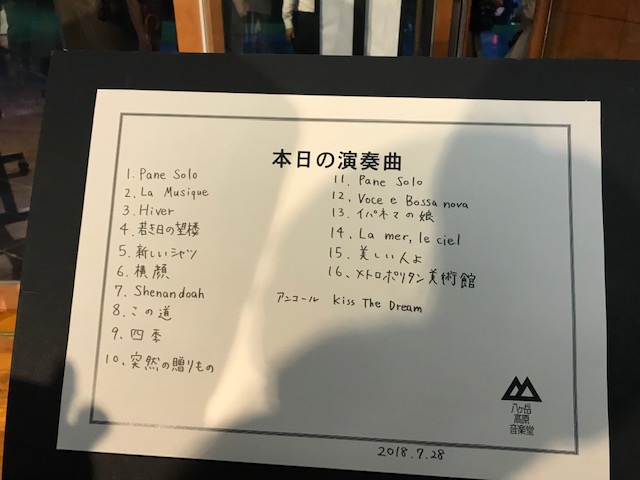 本日の演奏曲
1. Pane Solo
2. La Musique
3. Hiver
4. 若き日の望楼
5. 新しいシャツ
6. 横顔
7. Shenandoah
8. この道
9. 四季
10. 突然の贈りもの
11. Pane Solo
12. Voce e Bossa nova
13. イパネマの娘
14. La mer, le ciel
15. 美しい人よ
16. メトロポリタン美術館
アンコール Kiss The Dream
八ヶ岳
高原
音楽堂
2018.7.28